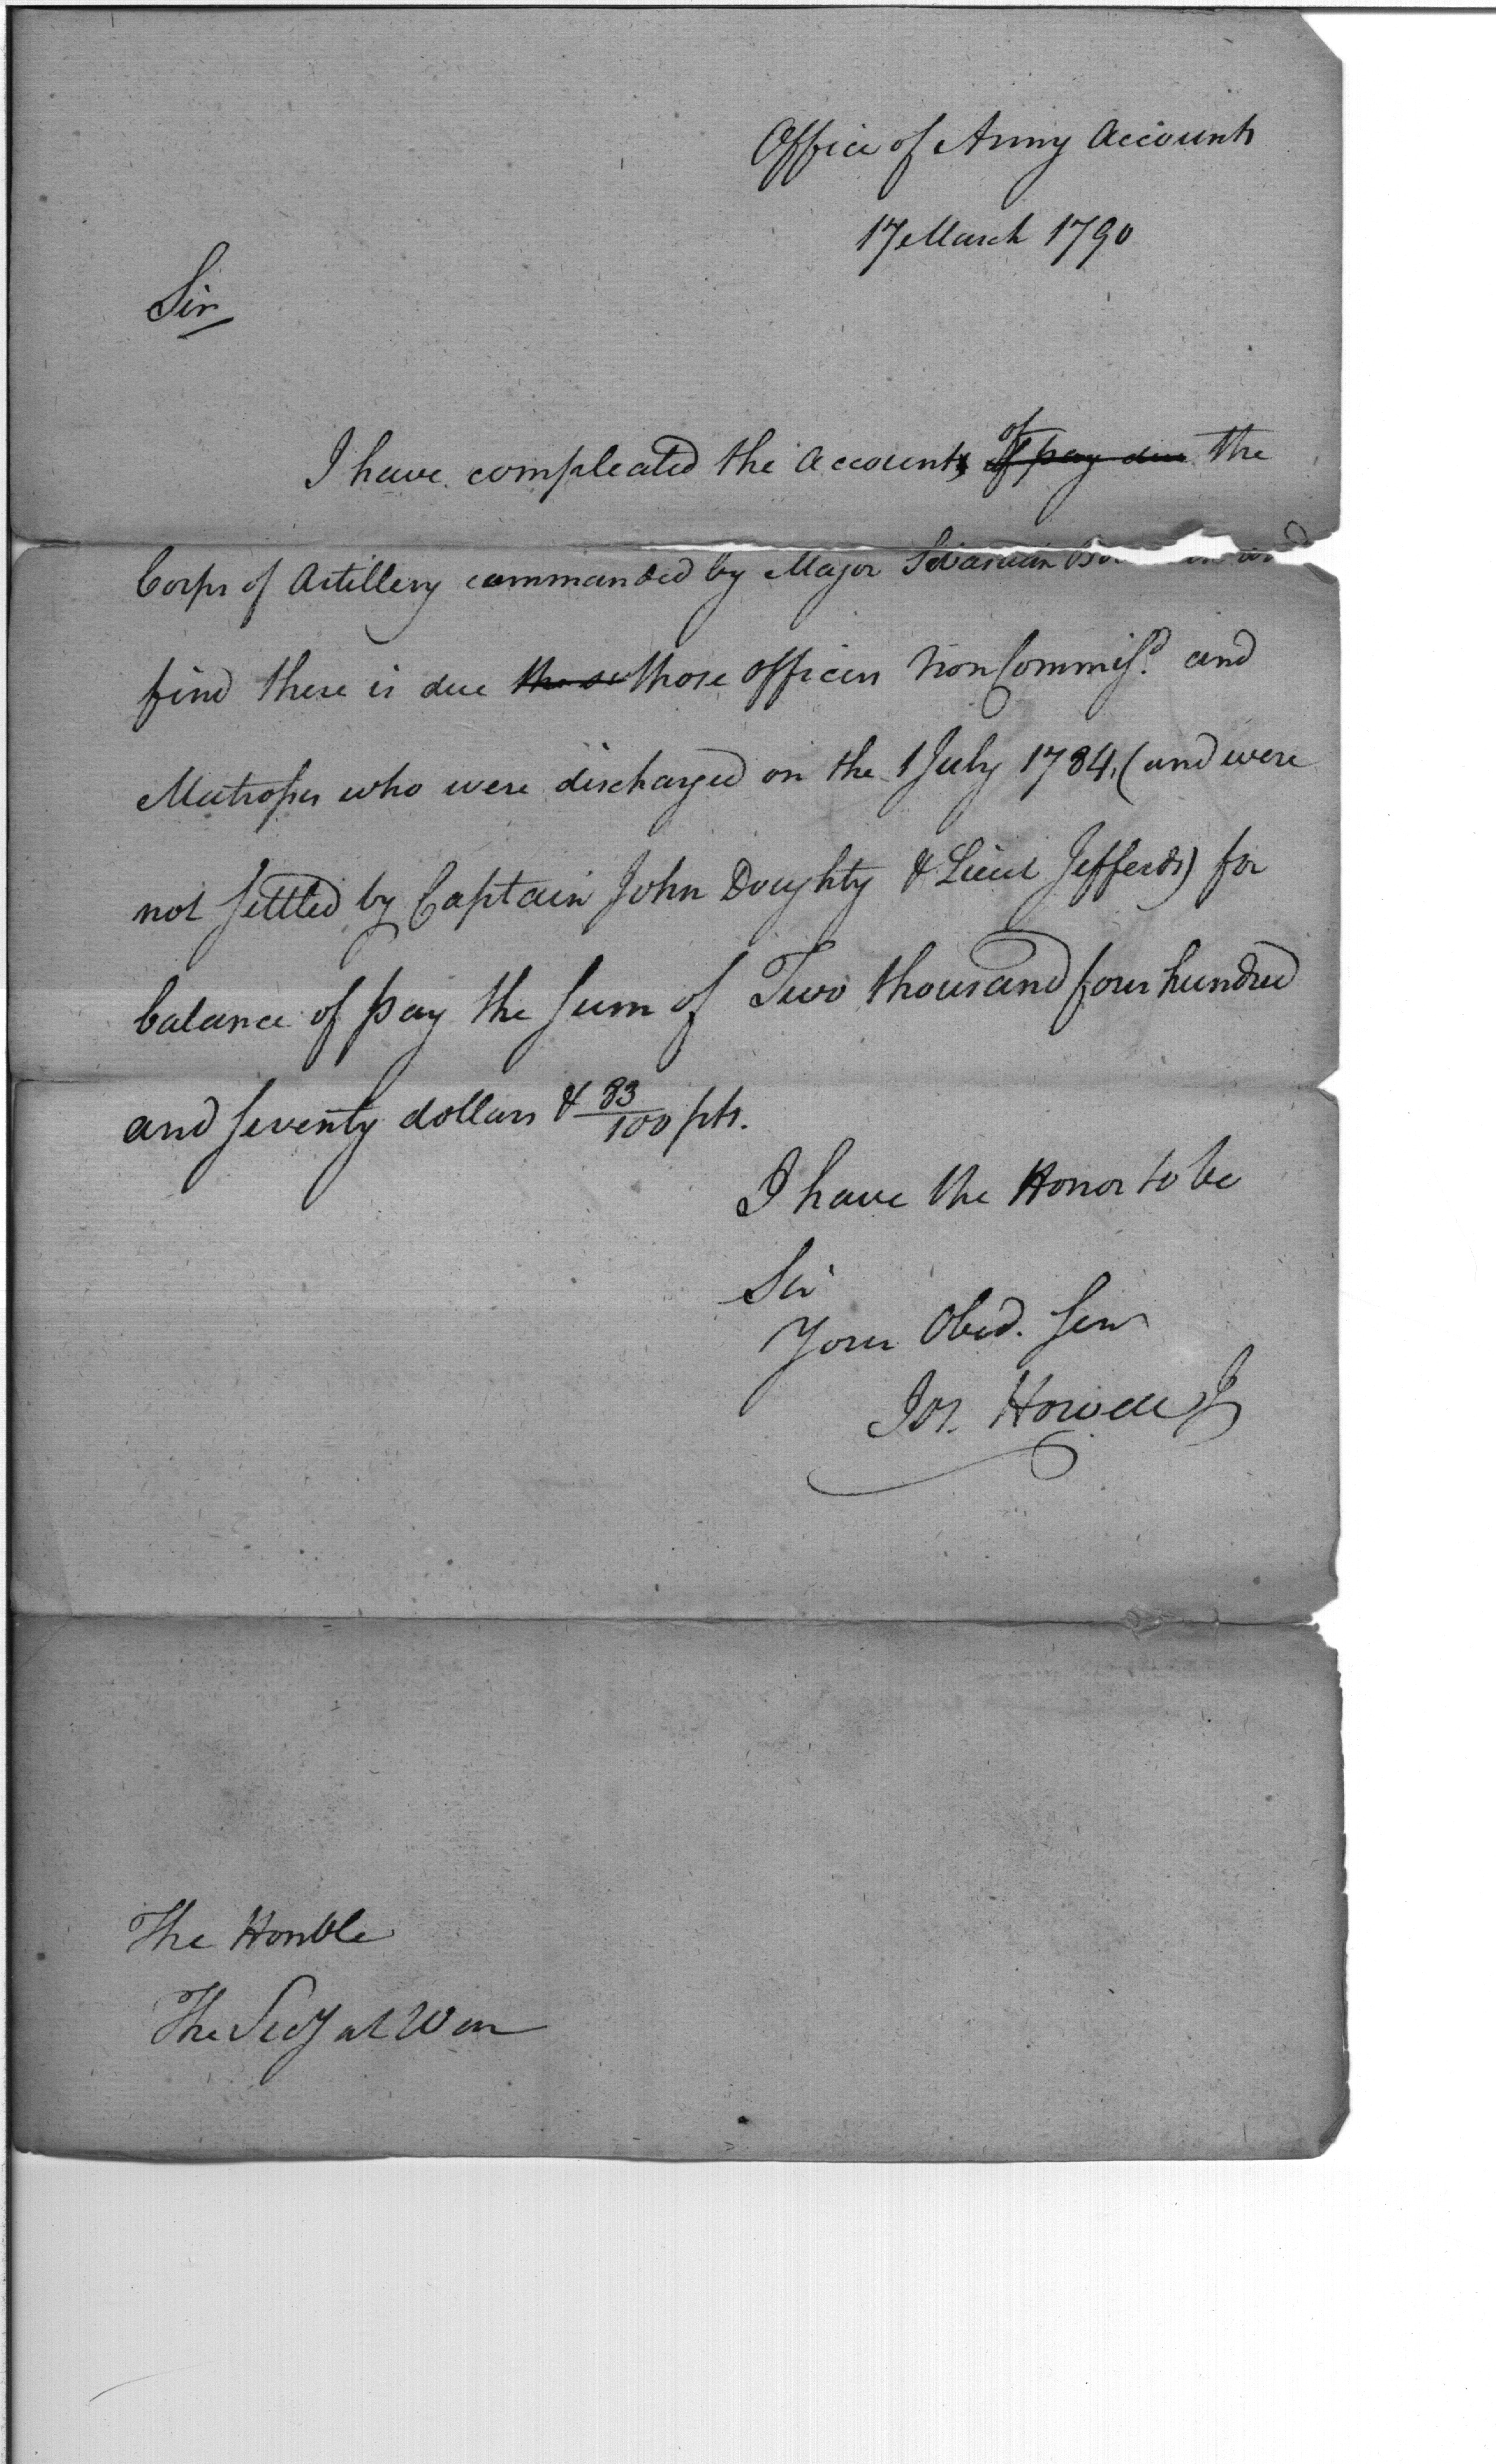 Office of Army Accounts
17 March 1790
Sir
I have compleated the Accounts of pay due of the
Corps of Artillery commanded by Major and
find there is due those those officers Non Commisd. and
Matrosses who were discharged on the 1 July 1784, (and were
not settled by Captain John Doughty & Lieut Jefferds) for
balance of pay the sum of Two thousand four hundred
and seventy dollars & 83/100 pts.
I have the Honor to be
Sir
Your Obed. Serv
Jos. Howell Jr
The Honble
The Secy at War